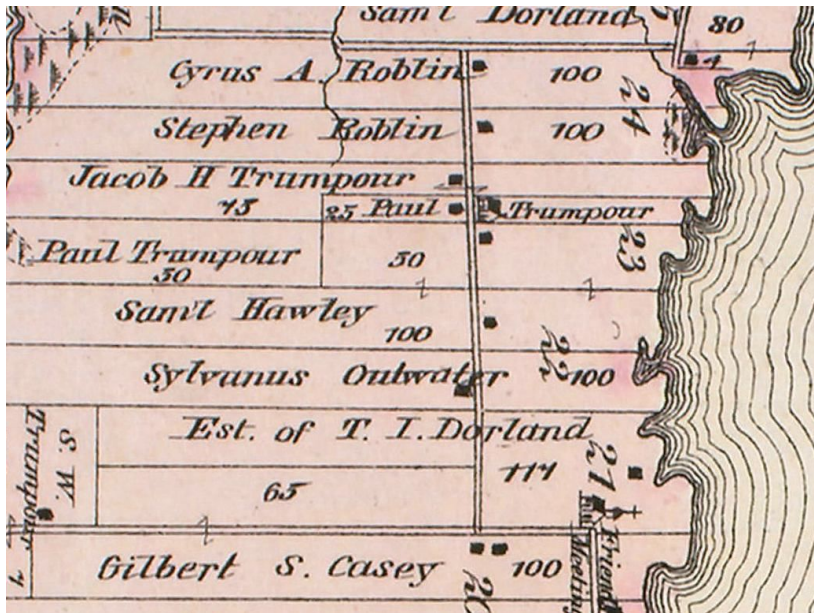 Sam'l Dorland
80
4
Cyrus A. Roblin 100
24
Stephen Roblin 100
Jacob H Trumpour
75
25 Paul Trumpour
23
Paul Trumpour 50
50
Sam'l Hawley
100
22
Sylvanus Outwater 100
Est. of T. I. Dorland
117
21
65
S. W. Trumpour
Friends
Meeting
Gilbert S. Casey 100
20